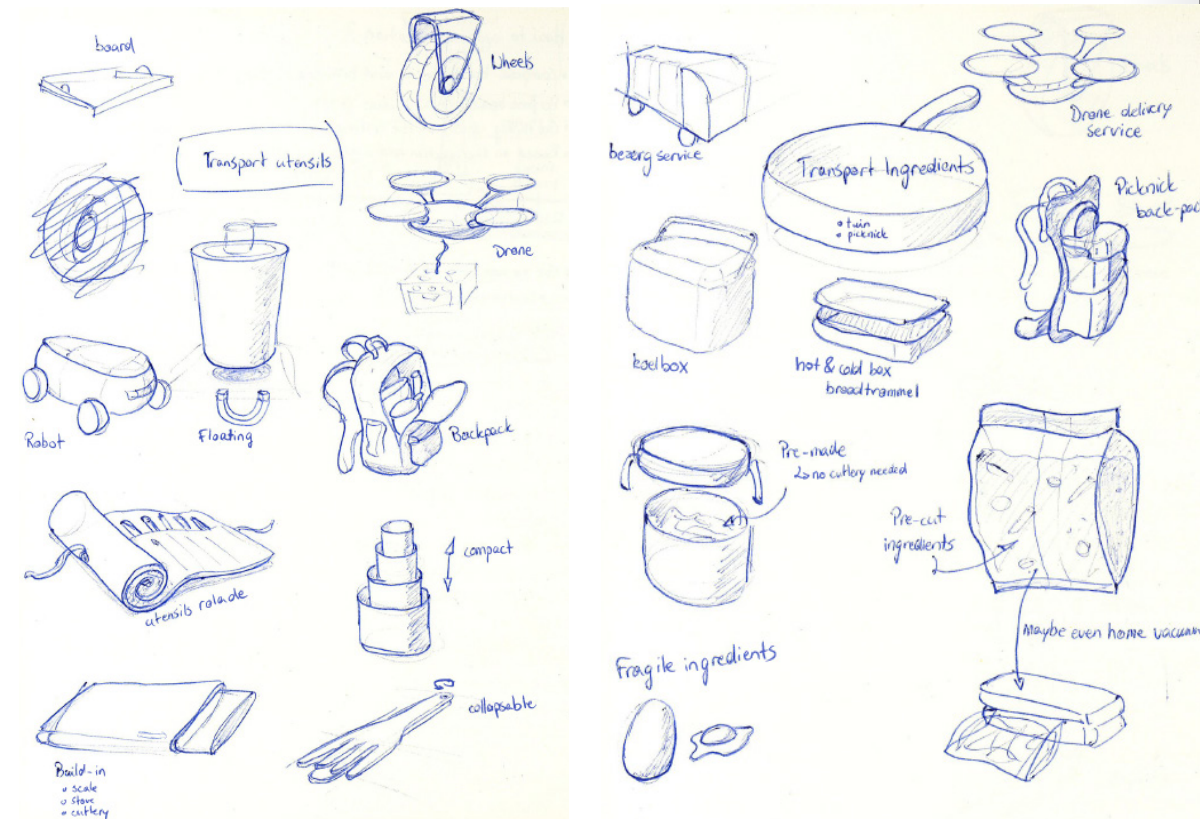 board
Wheels
Transport utensils
Drone
Robot
Floating
Backpack
utensils rolade
compact
collapsable
Build-in
scale
stove
cutlery
bezorg service
Drone delivery
service
Transport Ingredients
tuin
picknick
Picknick
back-pac
koelbox
hot & cold box
broodtrommel
Pre-made
↳ no cutlery needed
Pre-cut
ingredients
Maybe even home vacuum
Fragile ingredients